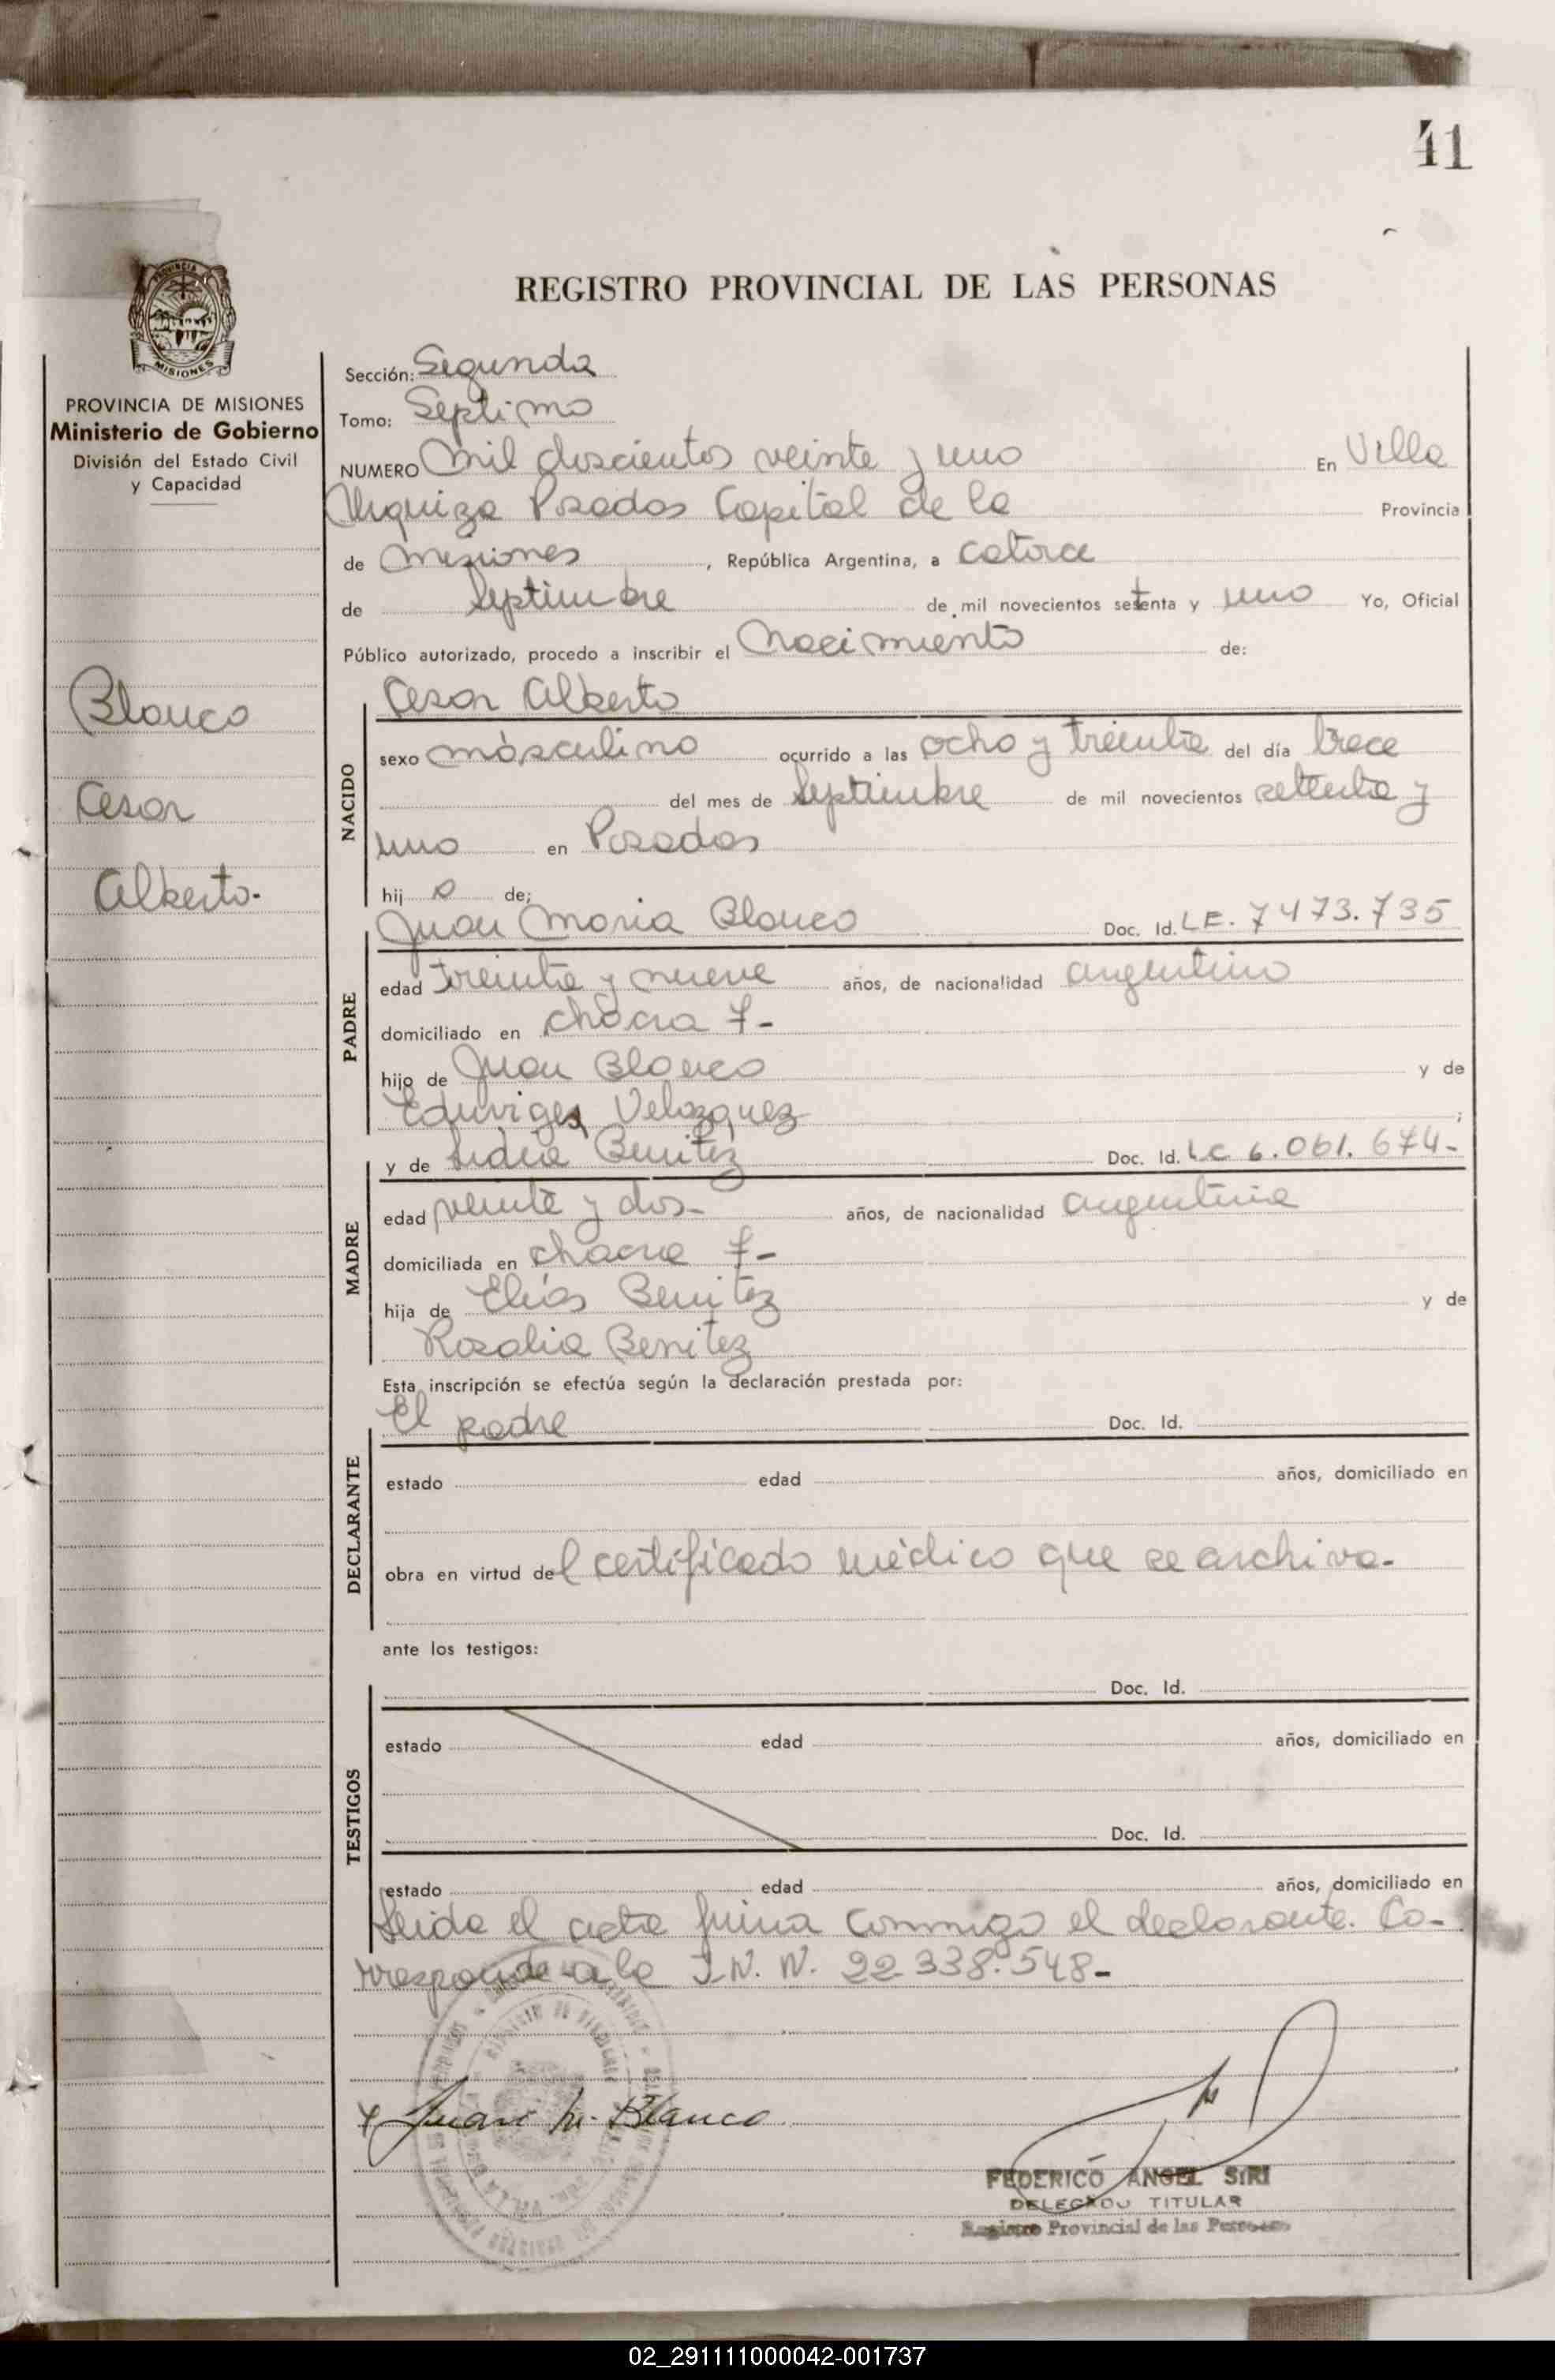 41
REGISTRO PROVINCIAL DE LAS PERSONAS
PROVINCIA
MISIONES
PROVINCIA DE MISIONES
Ministerio de Gobierno
División del Estado Civil
y Capacidad
Blanco
Cesar
Alberto-
Sección: Segunda
Tomo: Septimo
NUMERO Mil doscientos veinte y uno En Villa
Urquiza Posadas Capital de la Provincia
de Misiones, República Argentina, a catorce
de Septiembre de mil novecientos setenta y uno Yo, Oficial
Público autorizado, procedo a inscribir el Nacimiento de:
Cesar Alberto
NACIDO
sexo másculino ocurrido a las ocho y treinta del día trece
del mes de Septiembre de mil novecientos setenta y
uno en Posadas
hij o de;
Juan Maria Blanco Doc. Id. LE. 7473.735
PADRE
edad treinta y nueve años, de nacionalidad argentino
domiciliado en chacra 7-
hijo de Juan Blanco y de
Eduviges Velazquez;
y de Lidia Benitez Doc. Id. LC 6.061.674-
MADRE
edad veinte y dos- años, de nacionalidad argentina
domiciliada en chacra 7-
hija de Elías Benitez y de
Rosalia Benitez
Esta inscripción se efectúa según la declaración prestada por:
El padre Doc. Id.
DECLARANTE
estado edad años, domiciliado en
obra en virtud del certificado médico que se archiva-
ante los testigos:
Doc. Id.
TESTIGOS
estado edad años, domiciliado en
Doc. Id.
estado edad años, domiciliado en
Leida el acta firma conmigo el declarante. Co-
rresponde a la I.N. N. 22.338.548-
Juan M. Blanco
FEDERICO ANGEL SIRI
DELEGADO TITULAR
Registro Provincial de las Personas
02_291111000042-001737